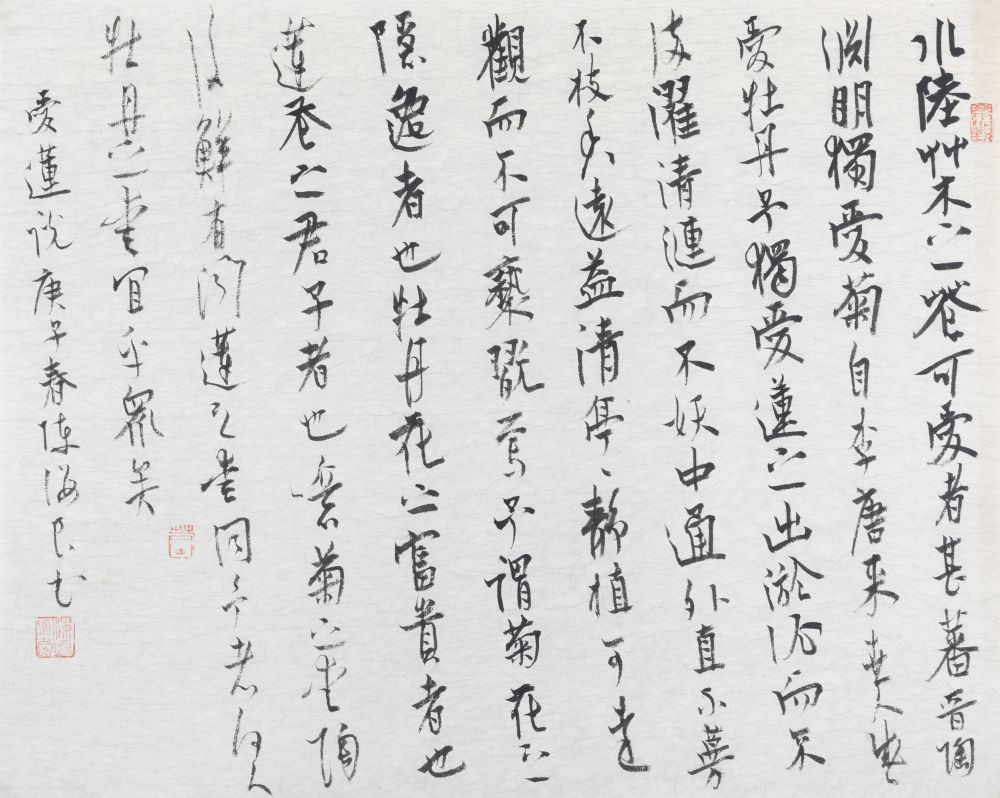 水陸艸木之花可愛者甚蕃晉陶
渊明獨愛菊自李唐来世人盛
愛牡丹予獨愛蓮之出淤泥而不
染濯清漣而不妖中通外直不蔓
不枝香遠益清亭〻静植可遠
觀而不可褻翫焉予謂菊花之
隱逸者也牡丹花之富貴者也
蓮花之君子者也噫菊之愛陶
後鮮有聞蓮之愛同予者何人
牡丹之愛宜乎衆矣
愛蓮説庚子春陳海良書